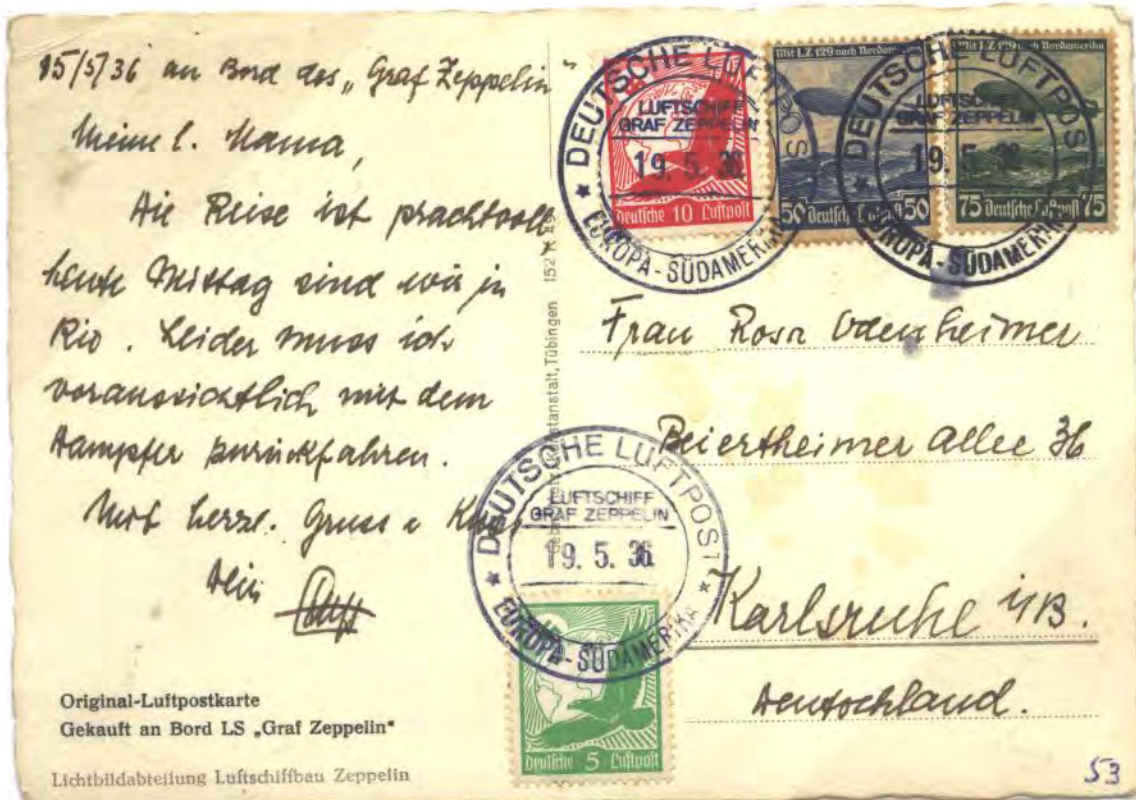 15/5/36 an Bord des „Graf Zeppelin“
Meine l. Mama,
Die Reise ist prachtvoll
heute Mittag sind wir in
Rio. Leider muss ich
voraussichtlich mit dem
Dampfer zurückfahren.
Mit herzl. Gruss u Kuss
Dein
Original-Luftpostkarte
Gekauft an Bord LS „Graf Zeppelin“
Lichtbildabteilung Luftschiffbau Zeppelin
Tübingen 152
DEUTSCHE LUFTPOST
LUFTSCHIFF
GRAF ZEPPELIN
19. 5. 36
EUROPA-SÜDAMERIKA
Deutsche 10 Luftpost
Mit LZ 129 nach Nordamerika
50 Deutsche Luftpost 50
DEUTSCHE LUFTPOST
LUFTSCHIFF
GRAF ZEPPELIN
19. 5. 36
EUROPA-SÜDAMERIKA
Mit LZ 129 nach Nordamerika
75 Deutsche Luftpost 75
Frau Rosa Odenheimer
Beiertheimer Allee 36
Karlsruhe i/B.
Deutschland.
DEUTSCHE LUFTPOST
LUFTSCHIFF
GRAF ZEPPELIN
19. 5. 36
EUROPA-SÜDAMERIKA
Deutsche 5 Luftpost
53